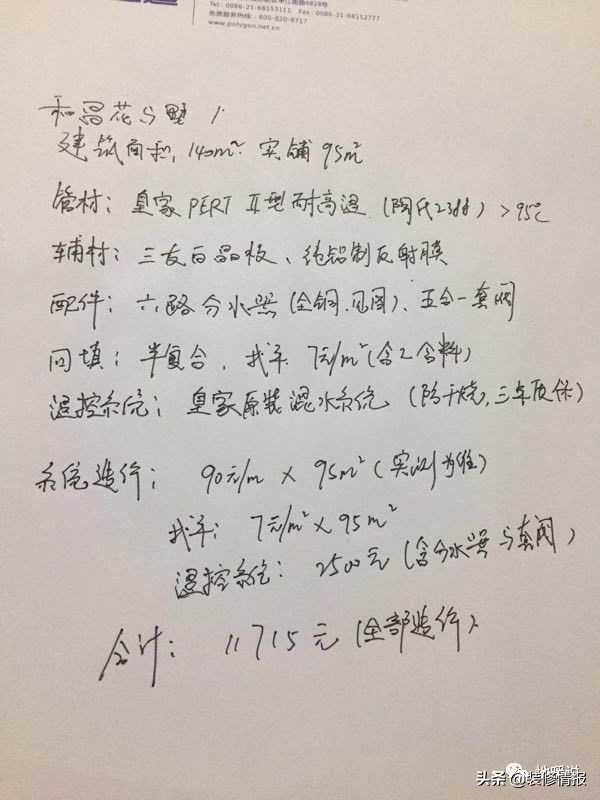 Tel：0086-21-68153111 Fax：0086-21-68152777
免费服务热线：800-820-8717
www.polygon.net.cn
和昌花与墅
建筑面积，140m² 实铺95m²
管材：皇家PERT Ⅱ型耐高温（陶氏2388）>95℃
辅材：三友白晶板、纯铝制反射膜
配件：六路分水器（全铜.见图）、五合一套阀
回填：半复合，找平 7元/m²（含工含料）
温控系统：皇家原装混水系统（防干烧，三年质保）
系统造价：90元/m × 95m²（实测为准）
找平：7元/m²×95m²
温控系统：2500元（含分水器与套阀）
合计：11715元（全部造价）
地暖说
头条 @装修情报